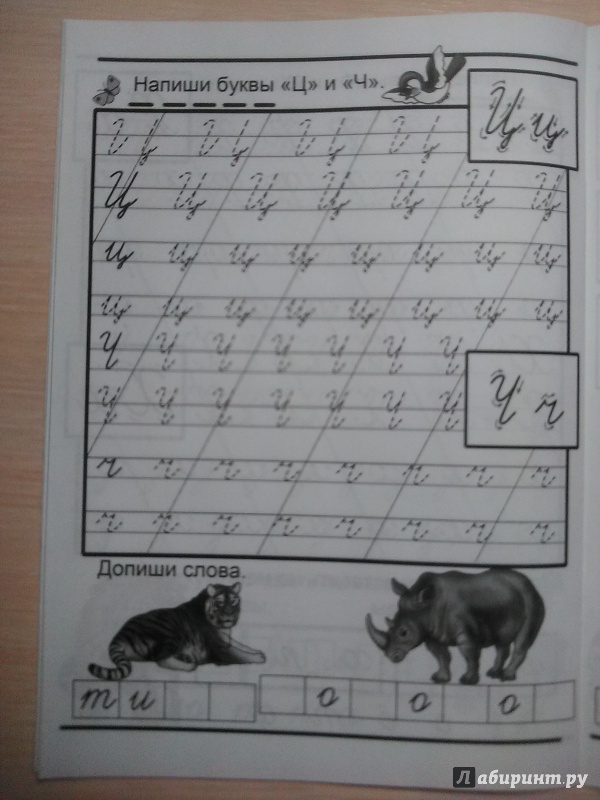 Напиши буквы «Ц» и «Ч».
Ц ц
Ц Ц Ц Ц Ц Ц Ц
ц ц ц ц ц ц ц ц
ц ц ц ц ц ц ц ц
Ч Ч Ч Ч Ч Ч Ч
Ч ч
Ч Ч Ч Ч Ч Ч Ч
ч ч ч ч ч ч ч ч
ч ч ч ч ч ч ч ч
Допиши слова.
т и
о о о
Лабиринт.ру